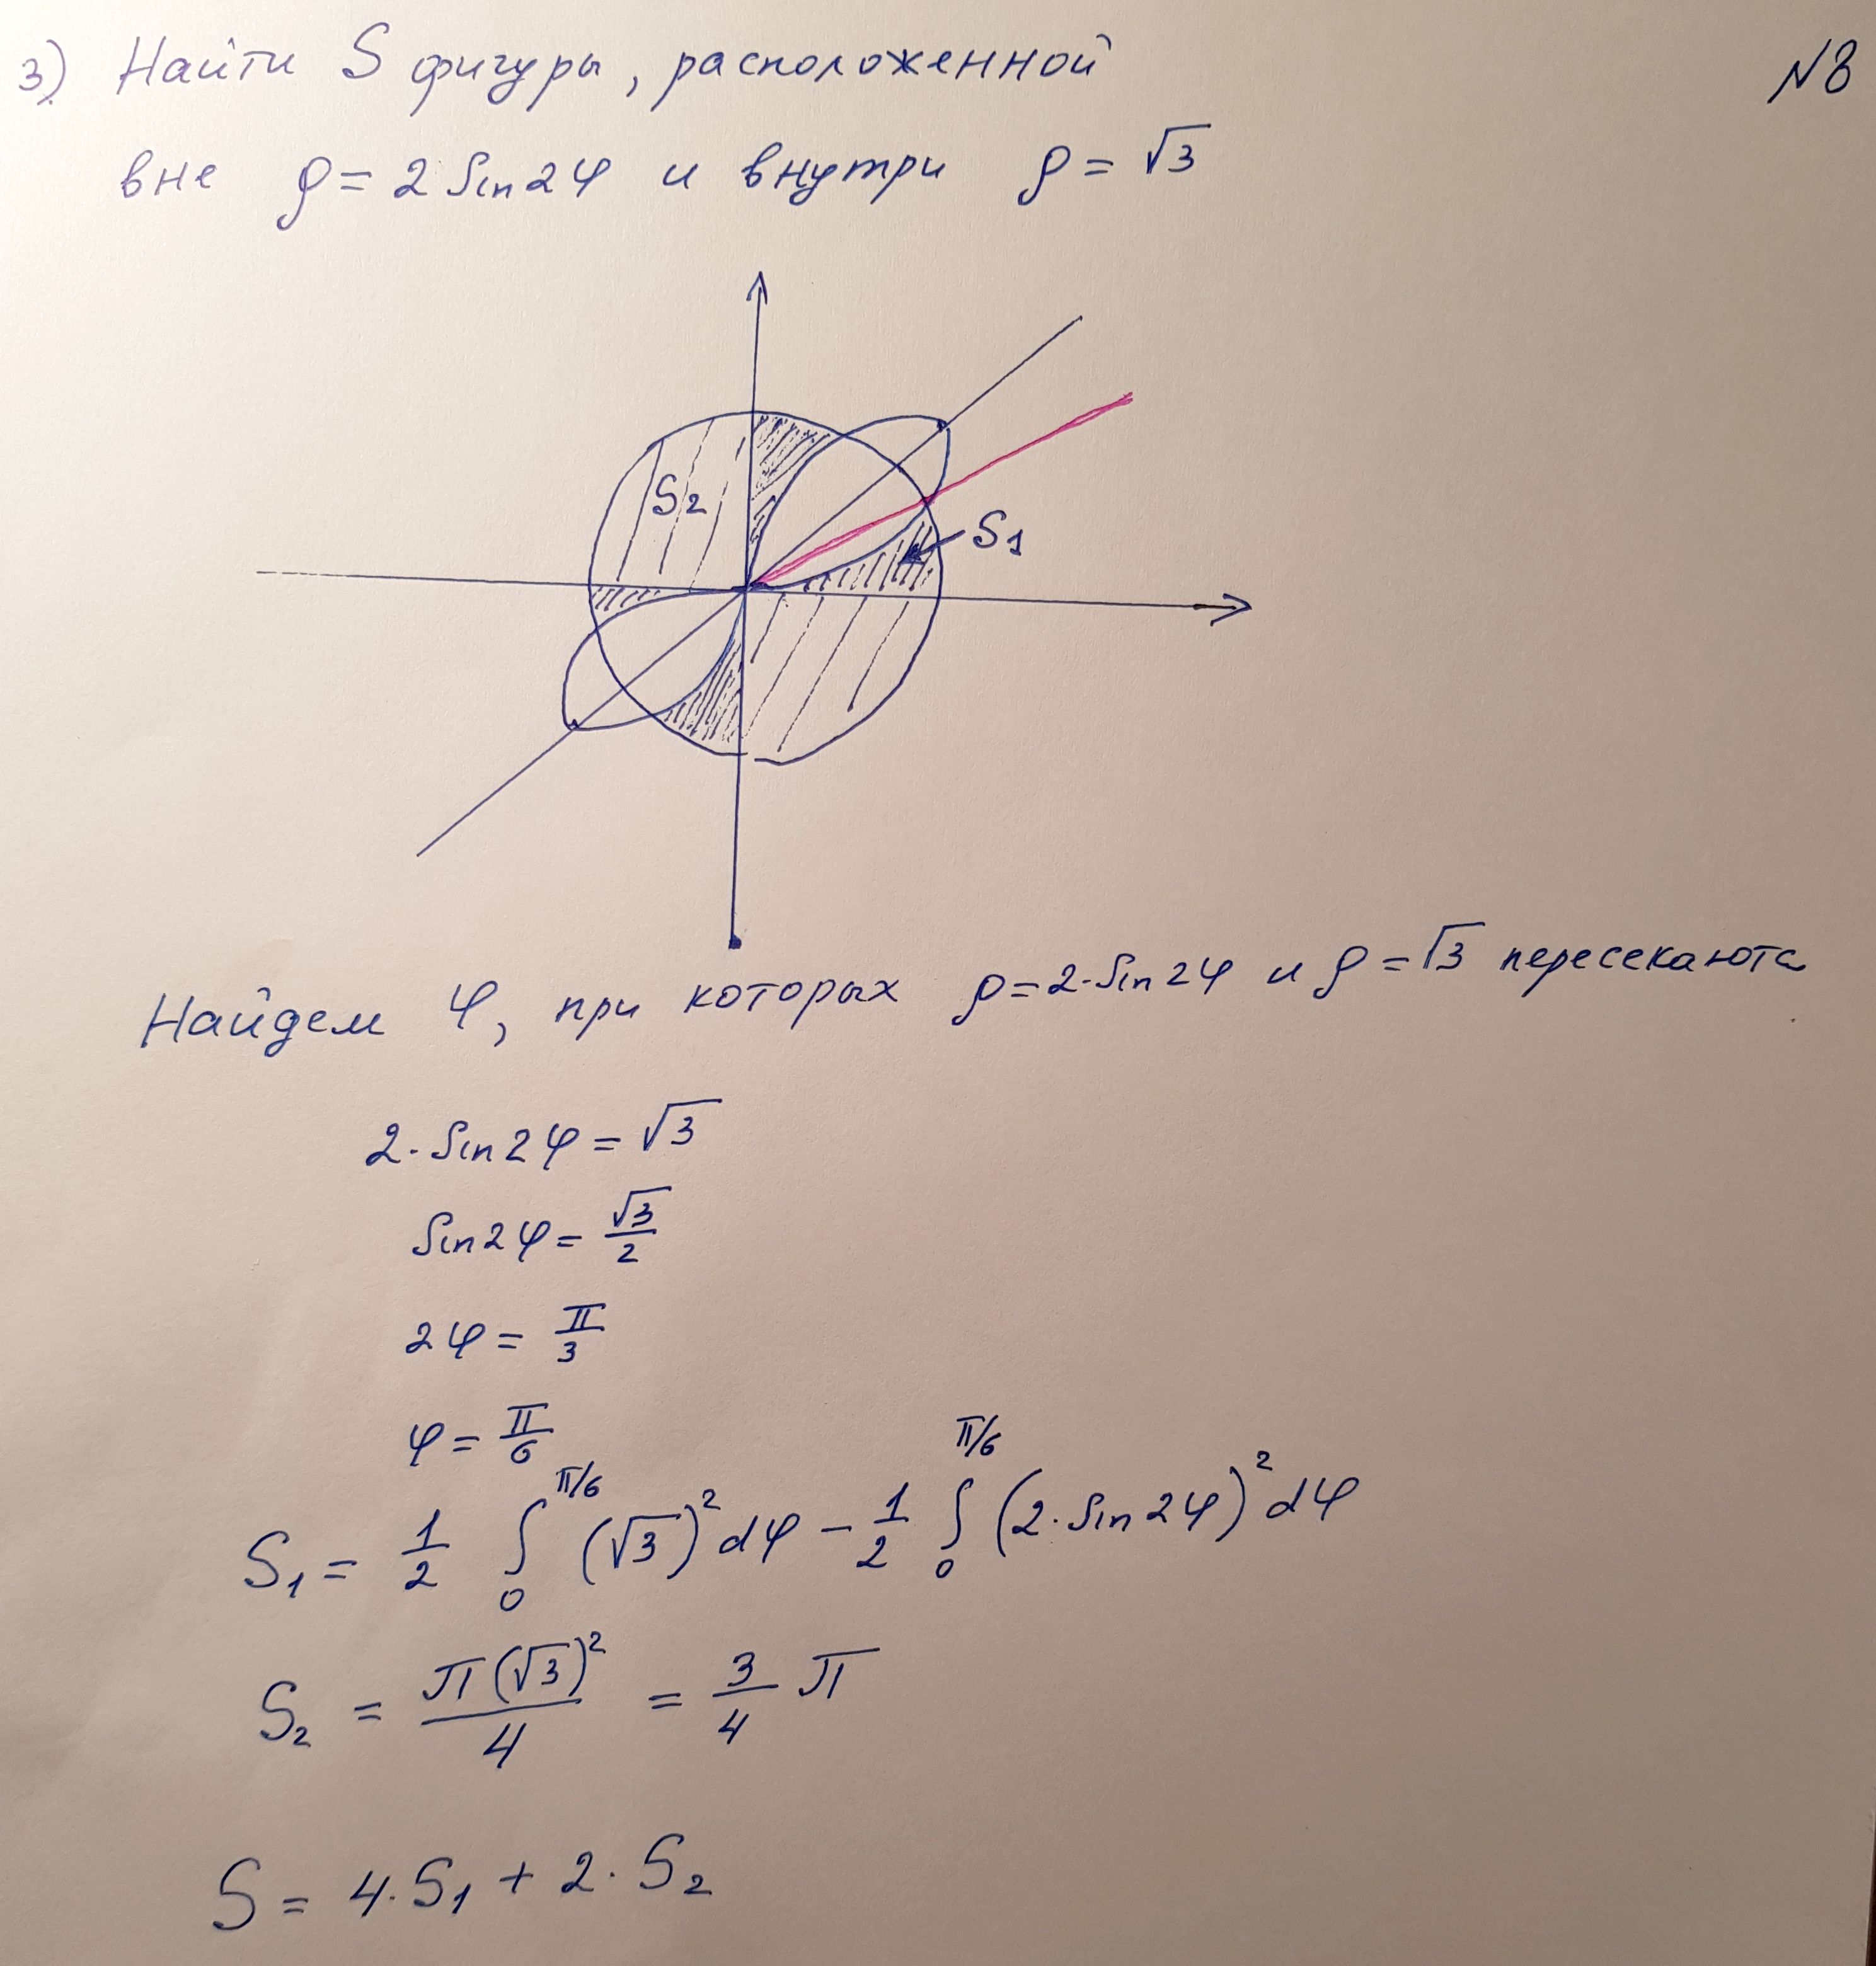 3) Найти S фигуры, расположенной
№8
вне ρ = 2 Sin 2φ и внутри ρ = √3
S₂
S₁
Найдем φ, при которых ρ = 2·Sin 2φ и ρ = √3 пересекаются
2·Sin 2φ = √3
Sin 2φ = √3/2
2φ = π/3
φ = π/6
S₁ = 1/2 ∫₀^(π/6) (√3)² dφ − 1/2 ∫₀^(π/6) (2·Sin 2φ)² dφ
S₂ = π(√3)²/4 = 3/4 π
S = 4·S₁ + 2·S₂